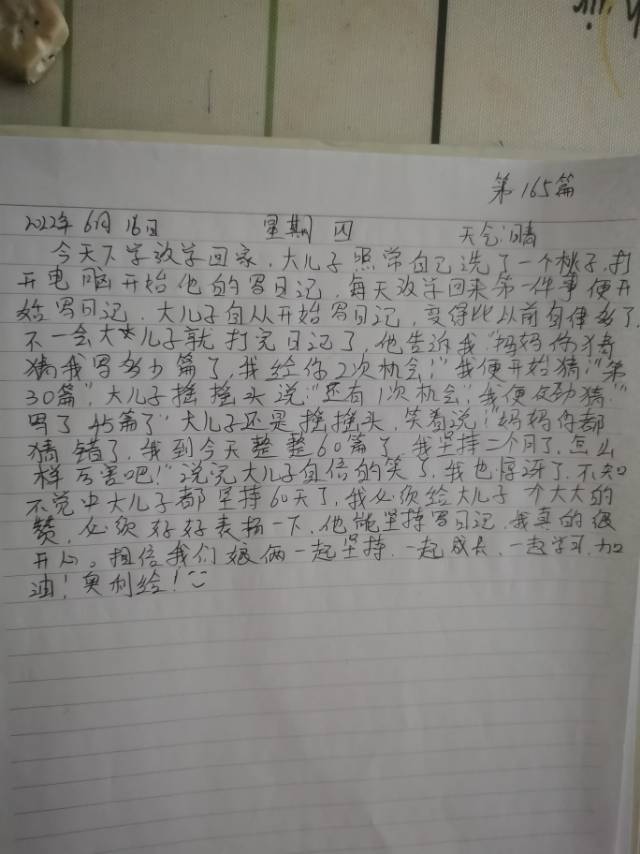 第165篇
2022年6月16日 星期四 天气:晴
今天下学放学回家，大儿子照常自己洗了一个桃子，打
开电脑开始他的写日记，每天放学回来第一件事便开
始写日记，大儿子自从开始写日记，变得比从前自律多了，
不一会大儿子就打完日记了，他告诉我“妈妈你猜
猜我写多少篇了，我给你2次机会！”我便开始猜：“第
30篇”，大儿子摇摇头说：“还有1次机会”，我便使劲猜：“
写了45篇了”大儿子还是摇摇头，笑着说：“妈妈你都
猜错了，我到今天整整60篇了，我坚持二个月了，怎么
样厉害吧！”说完大儿子自信的笑了，我也惊讶了，不知
不觉中大儿子都坚持60天了，我必须给大儿子个大大的
赞，必须好好表扬一下，他能坚持写日记，我真的很
开心。相信我们娘俩一起坚持，一起成长，一起学习，加
油！奥利给！